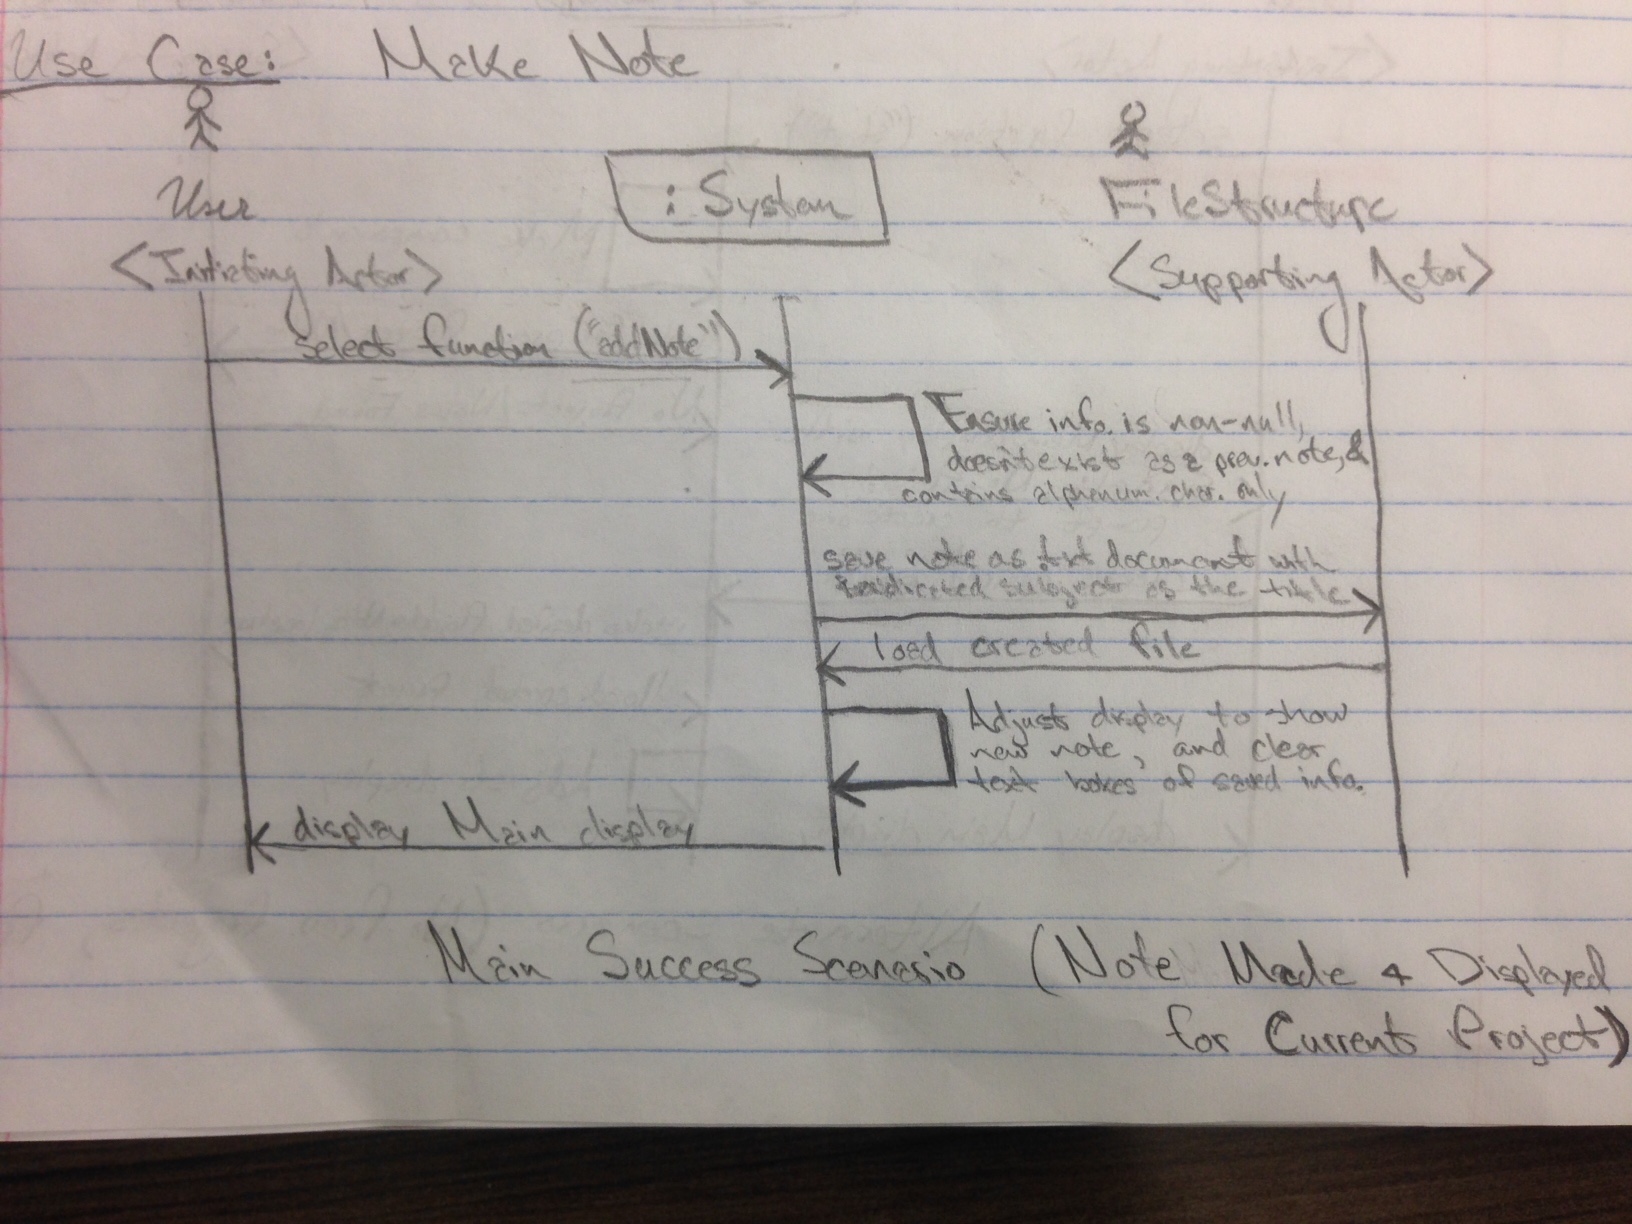 Use Case: Make Note
User
: System
FileStructure
<Initiating Actor>
<Supporting Actor>
select function ("addNote")
Ensure info. is non-null,
doesn't exist as a prev. note, &
contains alphanum. char. only
save note as .txt document with
indicated subject as the title
load created file
Adjust display to show
new note, and clear
text boxes of saved info.
display Main display
Main Success Scenario (Note Made & Displayed
for Current Project)